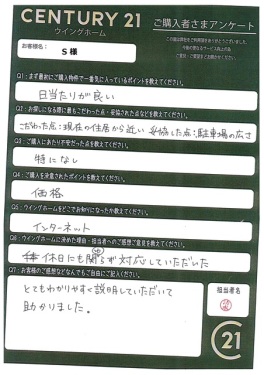 CENTURY 21
ウイングホーム
ご購入者さまアンケート
お客様名：
S様
Q1：まず最初にご購入物件で一番気に入っているポイントを教えてください。
日当たりが良い
Q2：お探しになる際に最もこだわった点・妥協された点などを教えてください。
こだわった点:現在の住居から近い 妥協した点:駐車場の広さ
Q3：ご購入にあたり不安だった点を教えてください。
特になし
Q4：ご購入を決意されたポイントを教えてください。
価格
Q5：ウイングホームをどこでお知りになったか教えてください。
インターネット
Q6：ウイングホームに決めた理由・担当者へのご感想ご意見を教えてください。
休日にも関らず対応していただいた
Q7：お客様のご感想などなんでもご自由にご記入ください。
とてもわかりやすく説明していただいて
助かりました。
担当者名
21